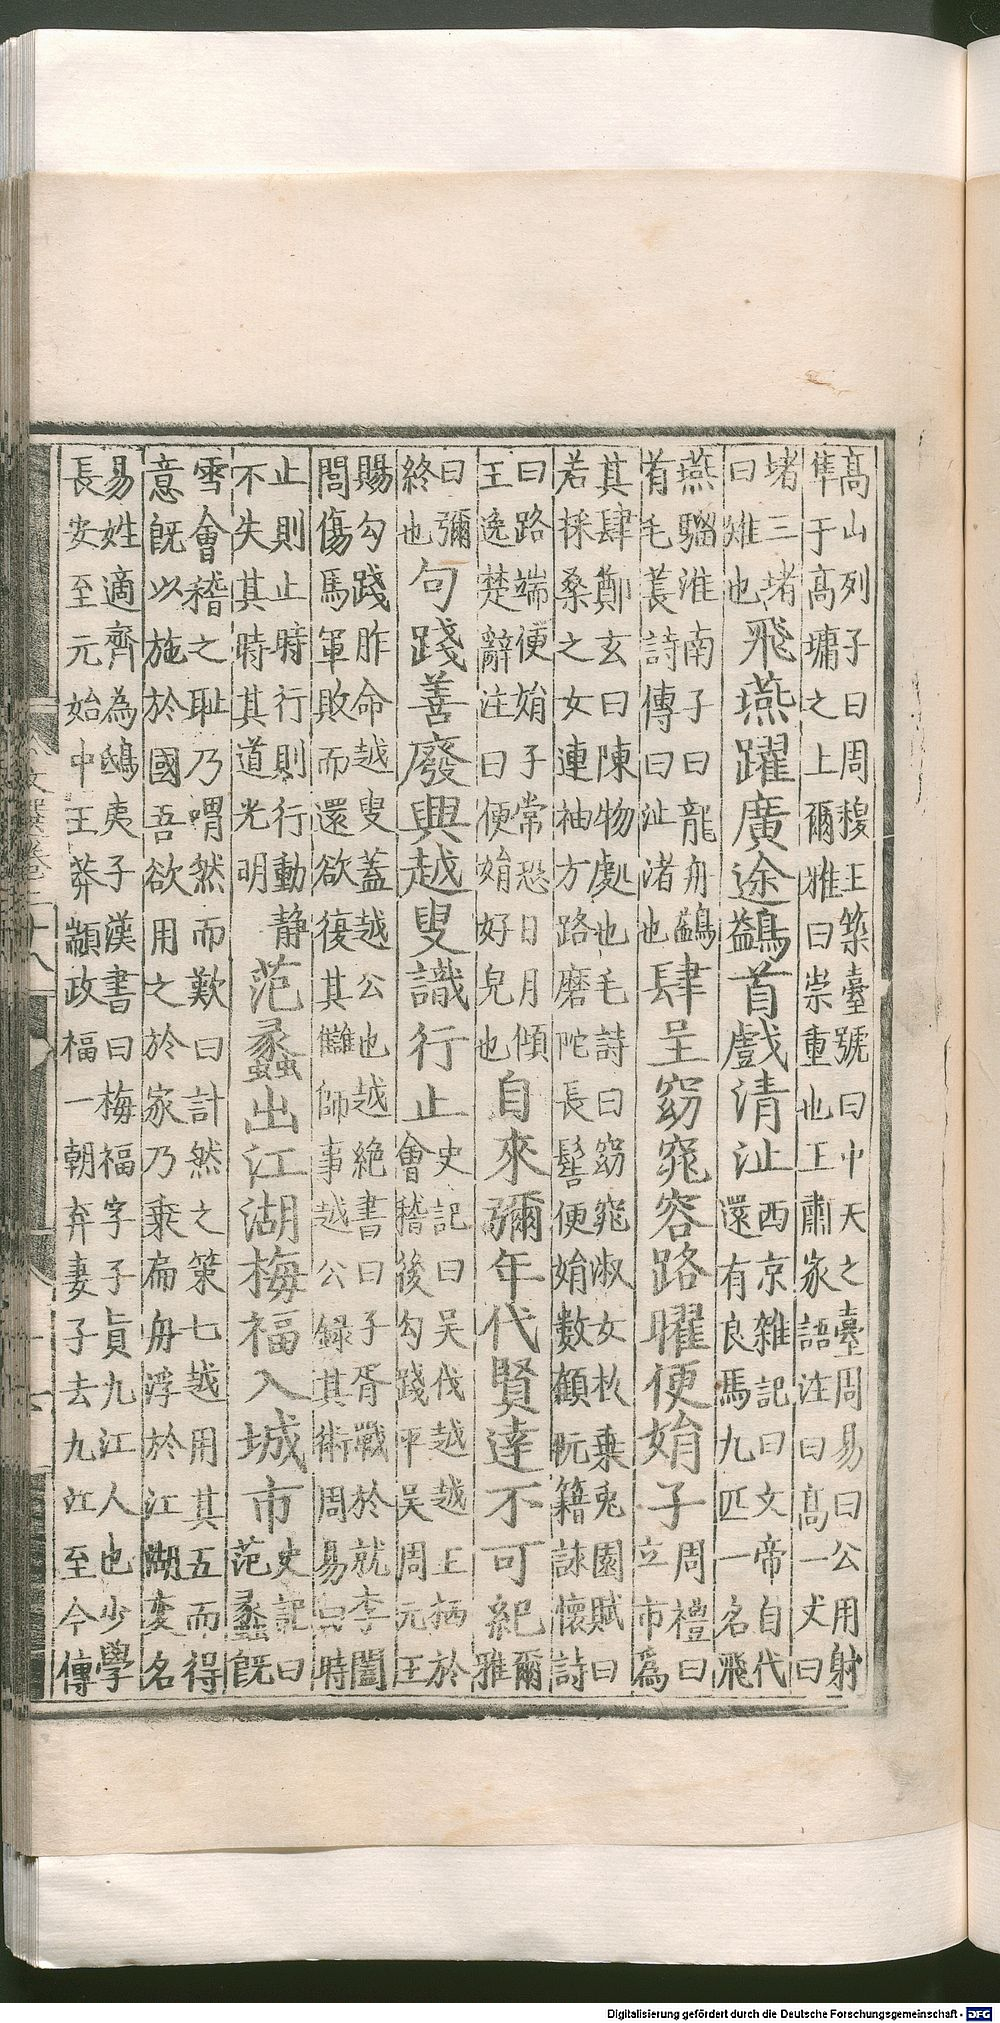 高山列子曰周穆王築臺號曰中天之臺周易曰公用射
隼于高墉之上爾雅曰崇重也王肅家語注曰高一丈曰
堵三堵
曰雉也
飛燕躍廣途鷁首戲清沚
西京雜記曰文帝自代
還有良馬九匹一名飛
燕騮淮南子曰龍舟鷁
首毛萇詩傳曰沚渚也
肆呈窈窕容路曜便娟子
周禮曰
立市為
其肆鄭玄曰陳物處也毛詩曰窈窕淑女枚乘兎園賦曰
若採桑之女連袖方路磨陀長髻便娟數顧阮籍詠懷詩
曰路端便娟子常恐日月傾
王逸楚辭注曰便娟好皃也
自來彌年代賢達不可紀
爾
雅
曰彌
終也
句踐善廢興越叟識行止
史記曰吳伐越越王栖於
會稽後勾踐平吳周元王
賜勾踐胙命越叟蓋越公也越絕書曰子胥戰於就李闔
閭傷馬軍敗而還欲復其讎師事越公録其術周易曰時
止則止時行則行動静
不失其時其道光明
范蠡出江湖梅福入城市
史記曰
范蠡既
雪會稽之耻乃喟然而歎曰計然之策七越用其五而得
意既以施於國吾欲用之於家乃乘扁舟浮於江湖変名
易姓適齊為鴟夷子漢書曰梅福字子貞九江人也少學
長安至元始中王莽顓政福一朝弃妻子去九江至今傳
Digitalisierung gefördert durch die Deutsche Forschungsgemeinschaft - DFG